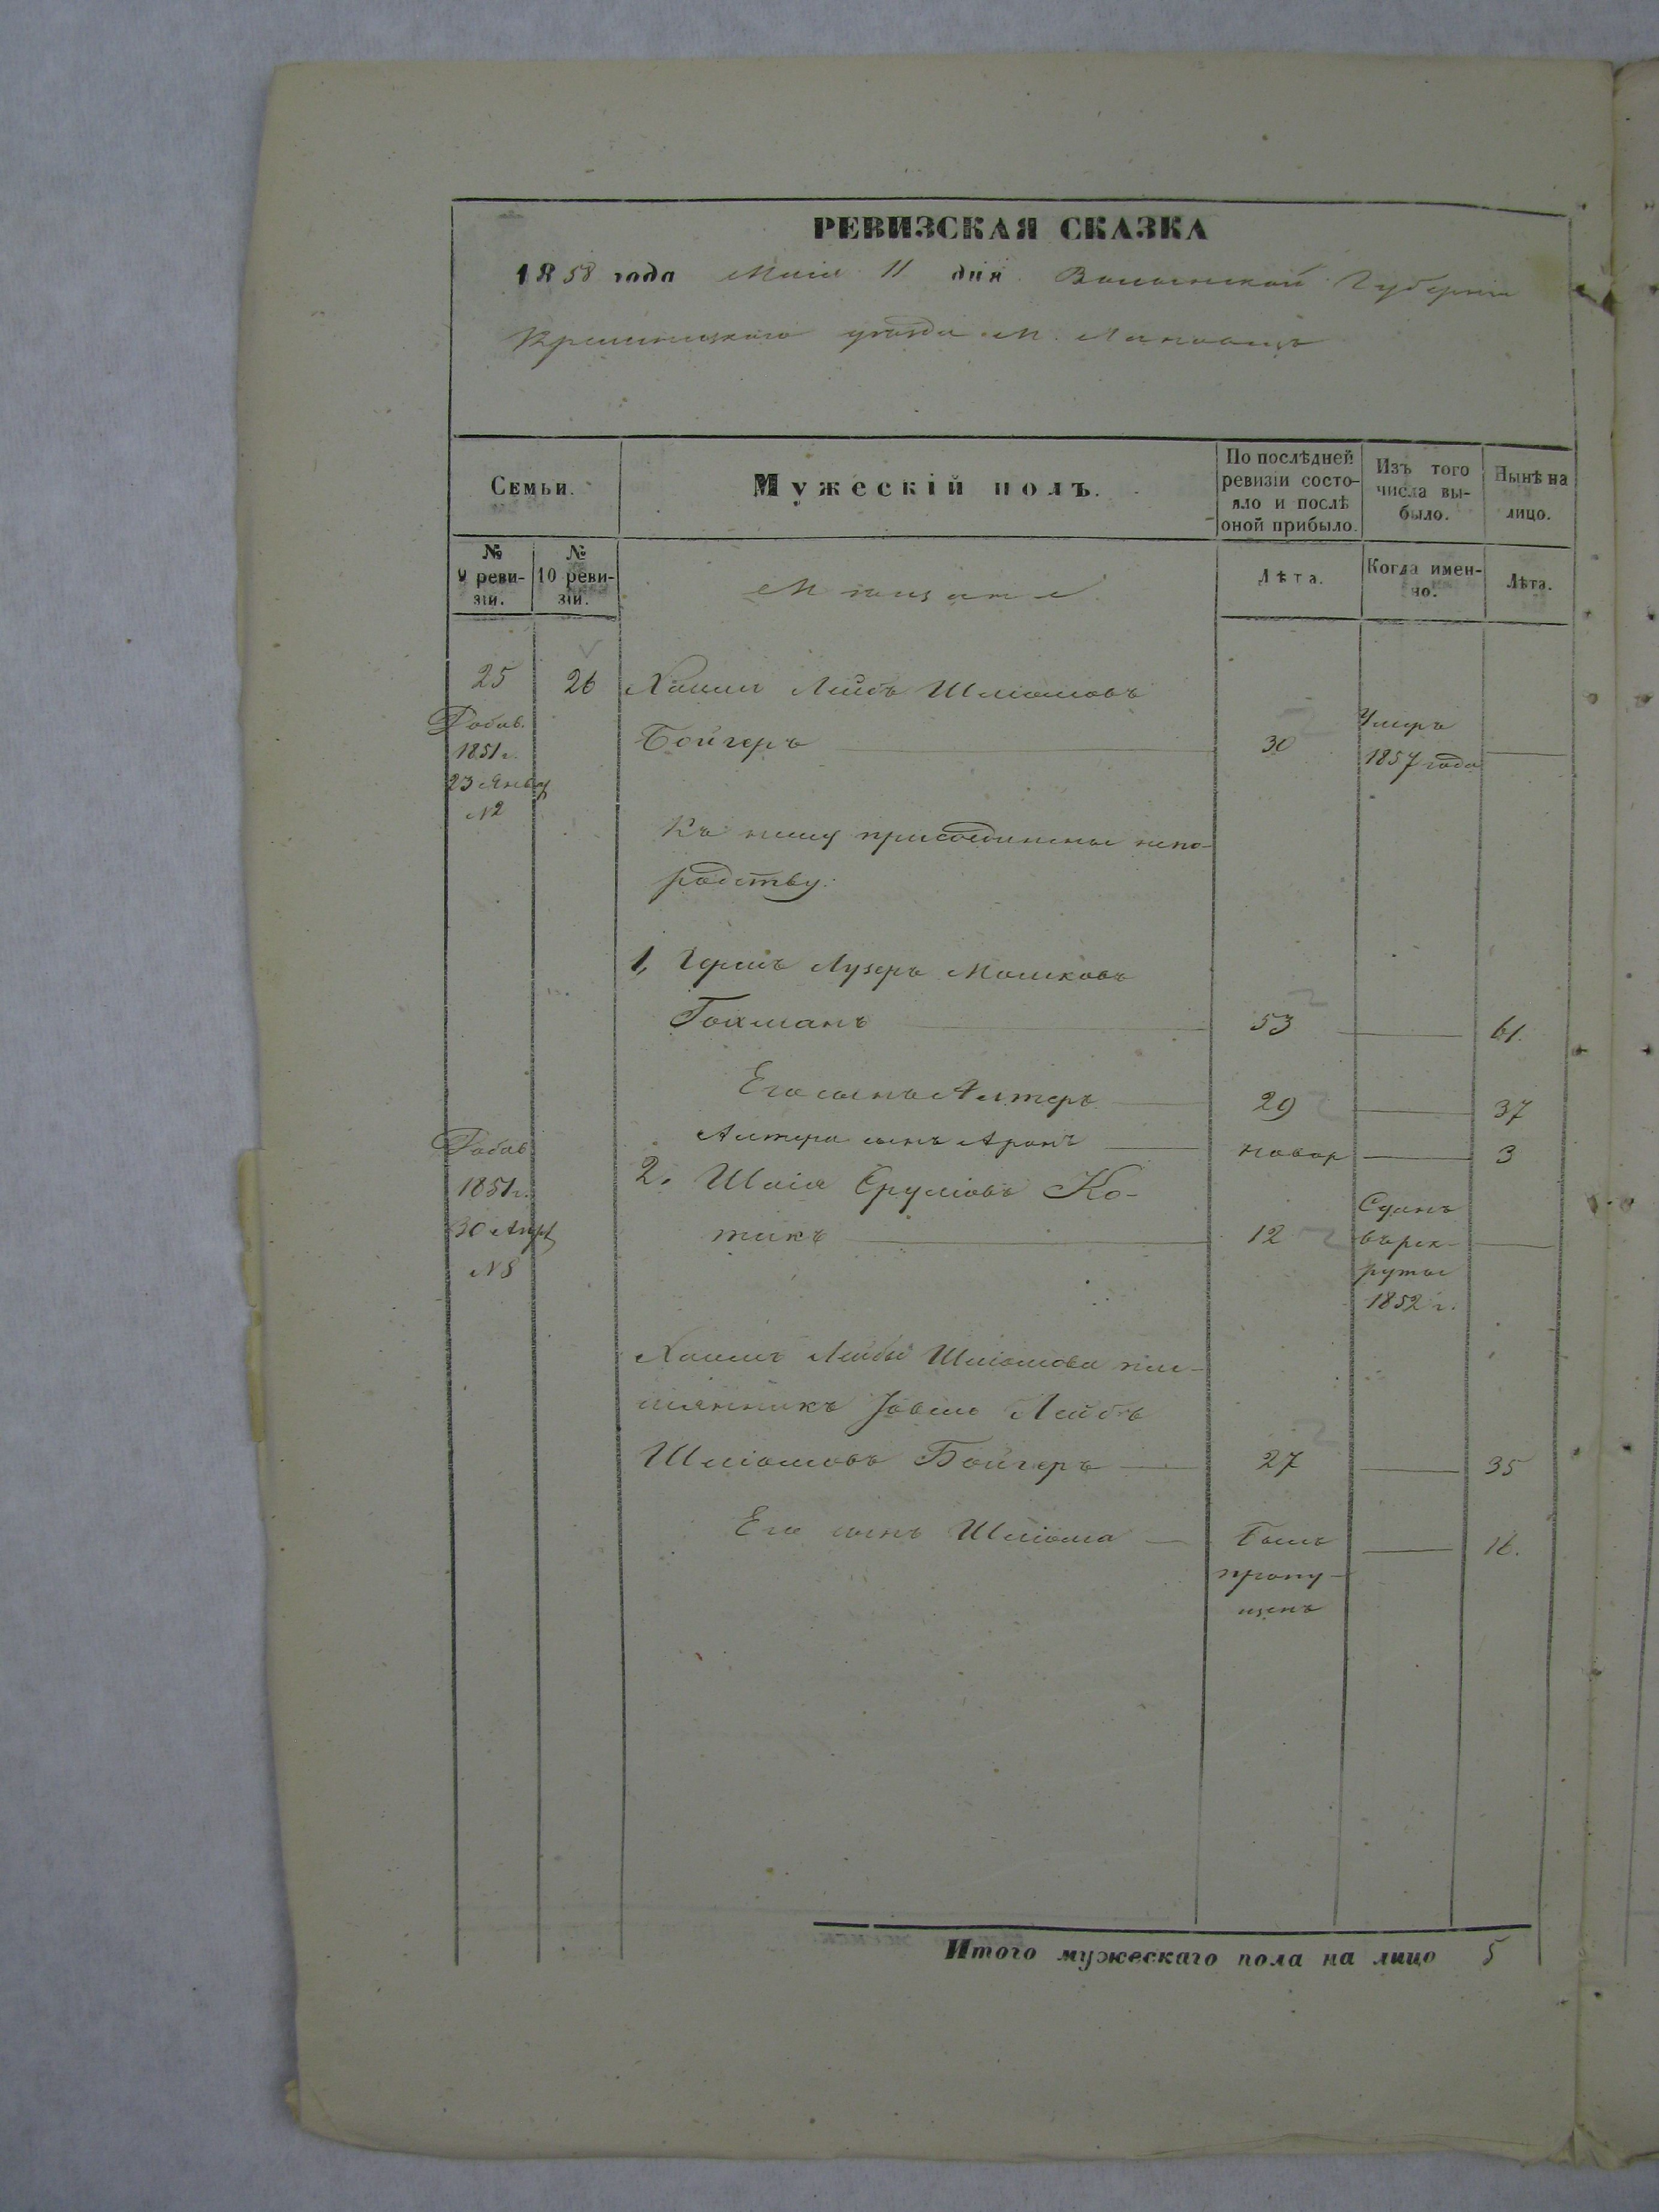 РЕВИЗСКАЯ СКАЗКА
1858 года Маія 11 дня Волынской Губерніи
Кременецкаго уезда М. Лановецъ
Семьи.
Мужескій полъ.
По послѣдней ревизіи состо-
яло и послѣ оной прибыло.
Изъ того числа вы-
было.
Нынѣ на лицо.
№ 9 реви-
зіи.
№ 10 реви-
зіи.
Мещане
Лѣта.
Когда имен-
но.
Лѣта.
25 26 Хаимъ Лейбъ Шліомовъ
Добав. 1851 г. 23 Январ N2
Бойгеръ 30 Умеръ 1857 года
Къ нему присоединены непо-
родству:
1, Гершъ Лузеръ Мошковъ
Гохманъ 53 61.
Его сынъ Алтеръ 29 37
Алтера сынъ Аронъ новор 3
Добав 1851 г. 30 Апр N8
2. Шаія Сруліовъ Ко-
тикъ 12 Сданъ
върек-
руты
1852 г.
Хаимъ Лейбы Шліомова пле-
мянникъ Іовель Лейбъ
Шліомовъ Бойгеръ 27 35
Его сынъ Шліома Былъ 16.
пропу-
щенъ
Итого мужескаго пола на лицо 5